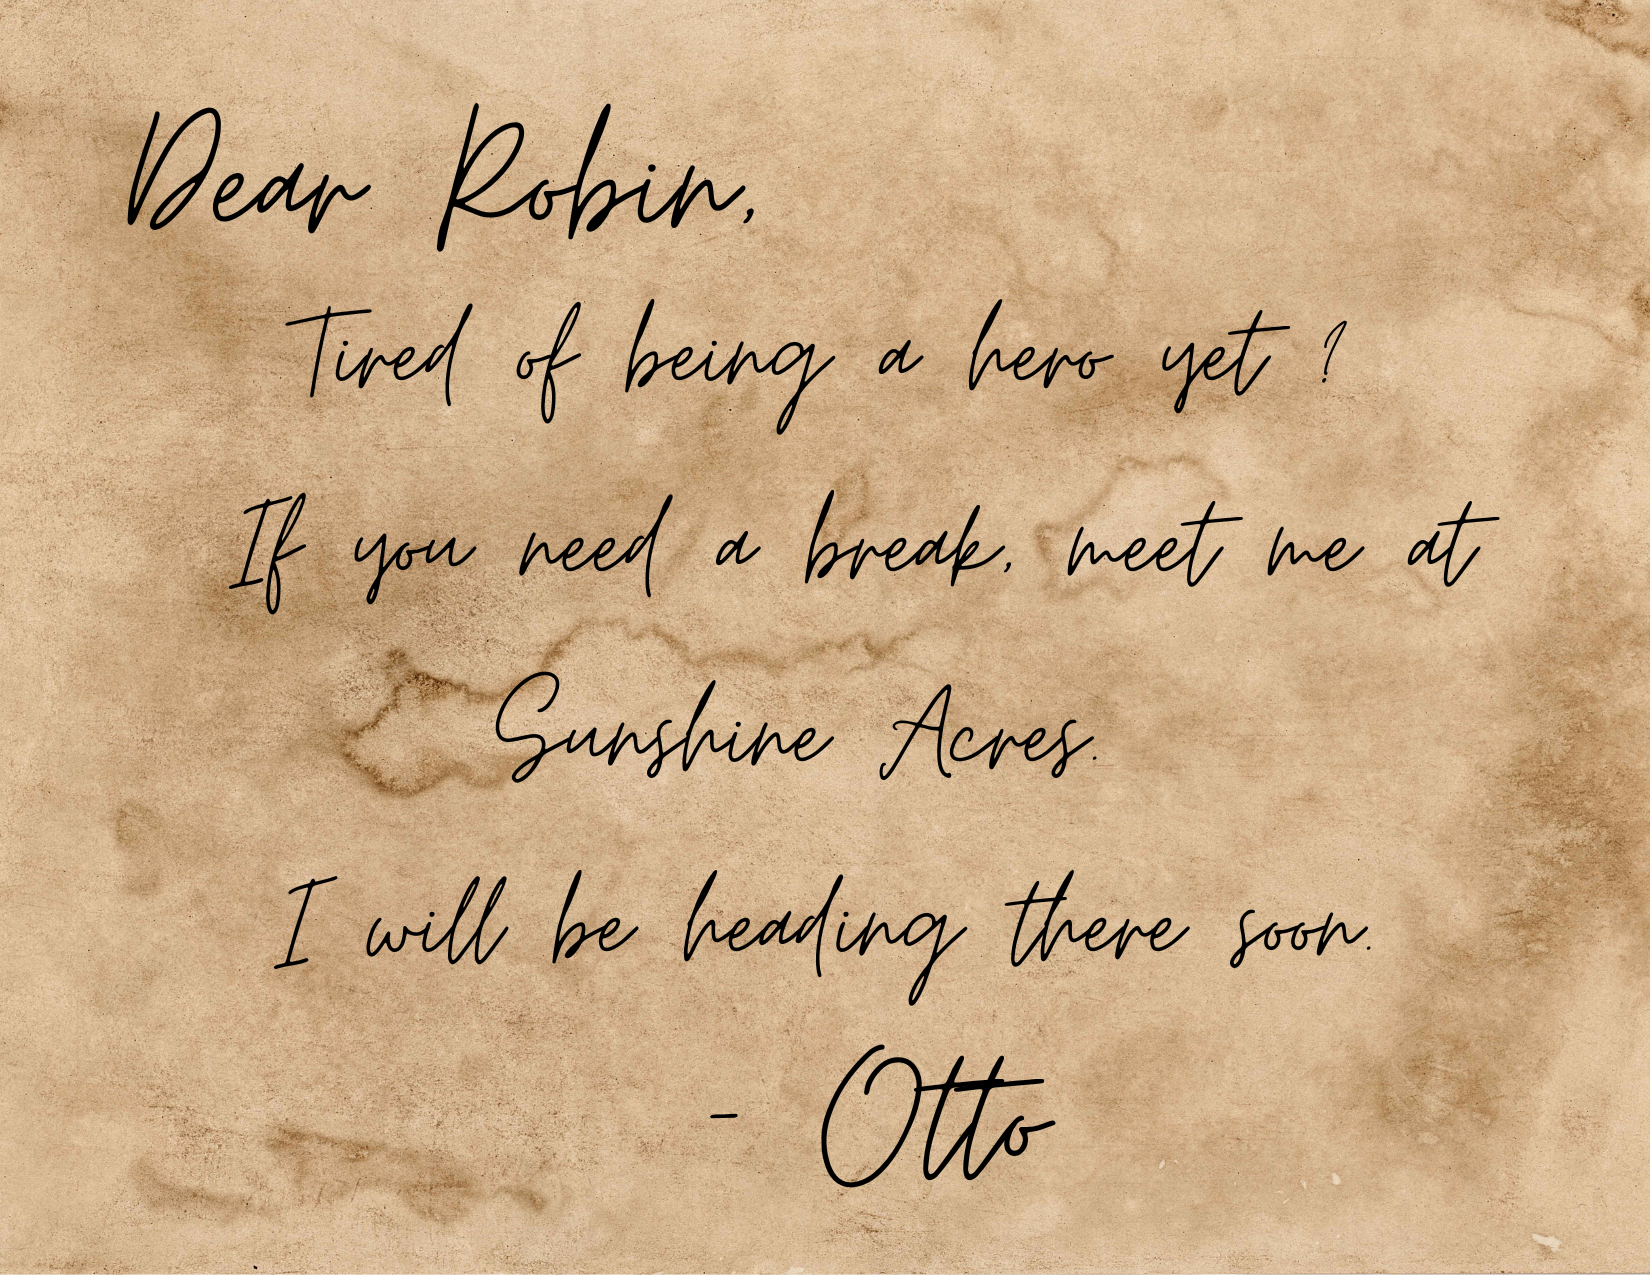 Dear Robin,
Tired of being a hero yet ?
If you need a break, meet me at
Sunshine Acres.
I will be heading there soon.
- Otto